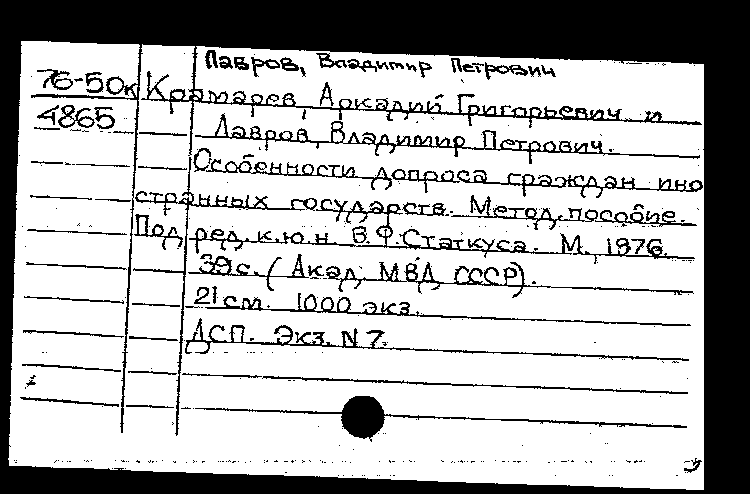 Лавров, Владимир Петрович
76-50к Крамарев, Аркадий Григорьевич и
4865 Лавров, Владимир Петрович.
Особенности допроса граждан ино
странных государств. Метод. пособие.
Под ред. к.ю.н. В.Ф. Статкуса. М., 1976.
39 с. (Акад. МВД СССР).
21 см. 1000 экз.
ДСП. Экз. N 7.